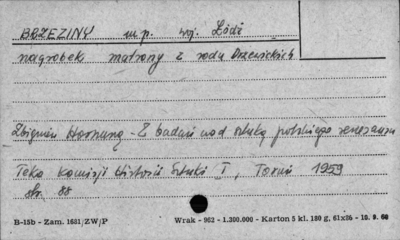 BRZEZINY m.p. woj. Łódź
nagrobek matrony z rodu Drzewickich
Zbigniew Hornung - Z badań nad sztuką polskiego renesansu
Teka Komisji Historii Sztuki I, Toruń 1959
str. 88
B-15b - Zam. 1681/ZW/P Wrak - 962 - 1.200.000 - Karton 5 kl. 180 g, 61x86 - 10.9.60